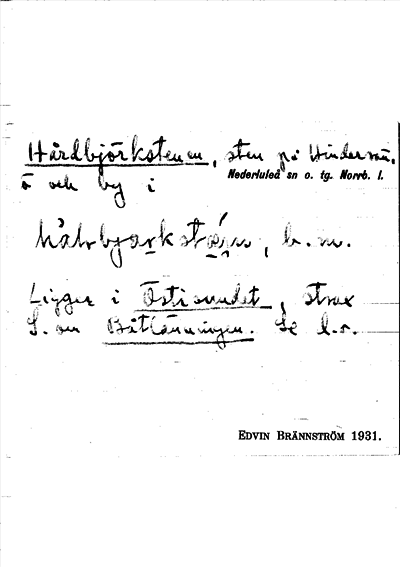 Hårdbjörkstenen, sten på Hindersön,
Nederluleå sn o. tg. Norrb. l.
ö och by i
b.m.
Ligger i Östisundet, strax
S. om Båtlänningen. Se d.o.
EDVIN BRÄNNSTRÖM 1931.